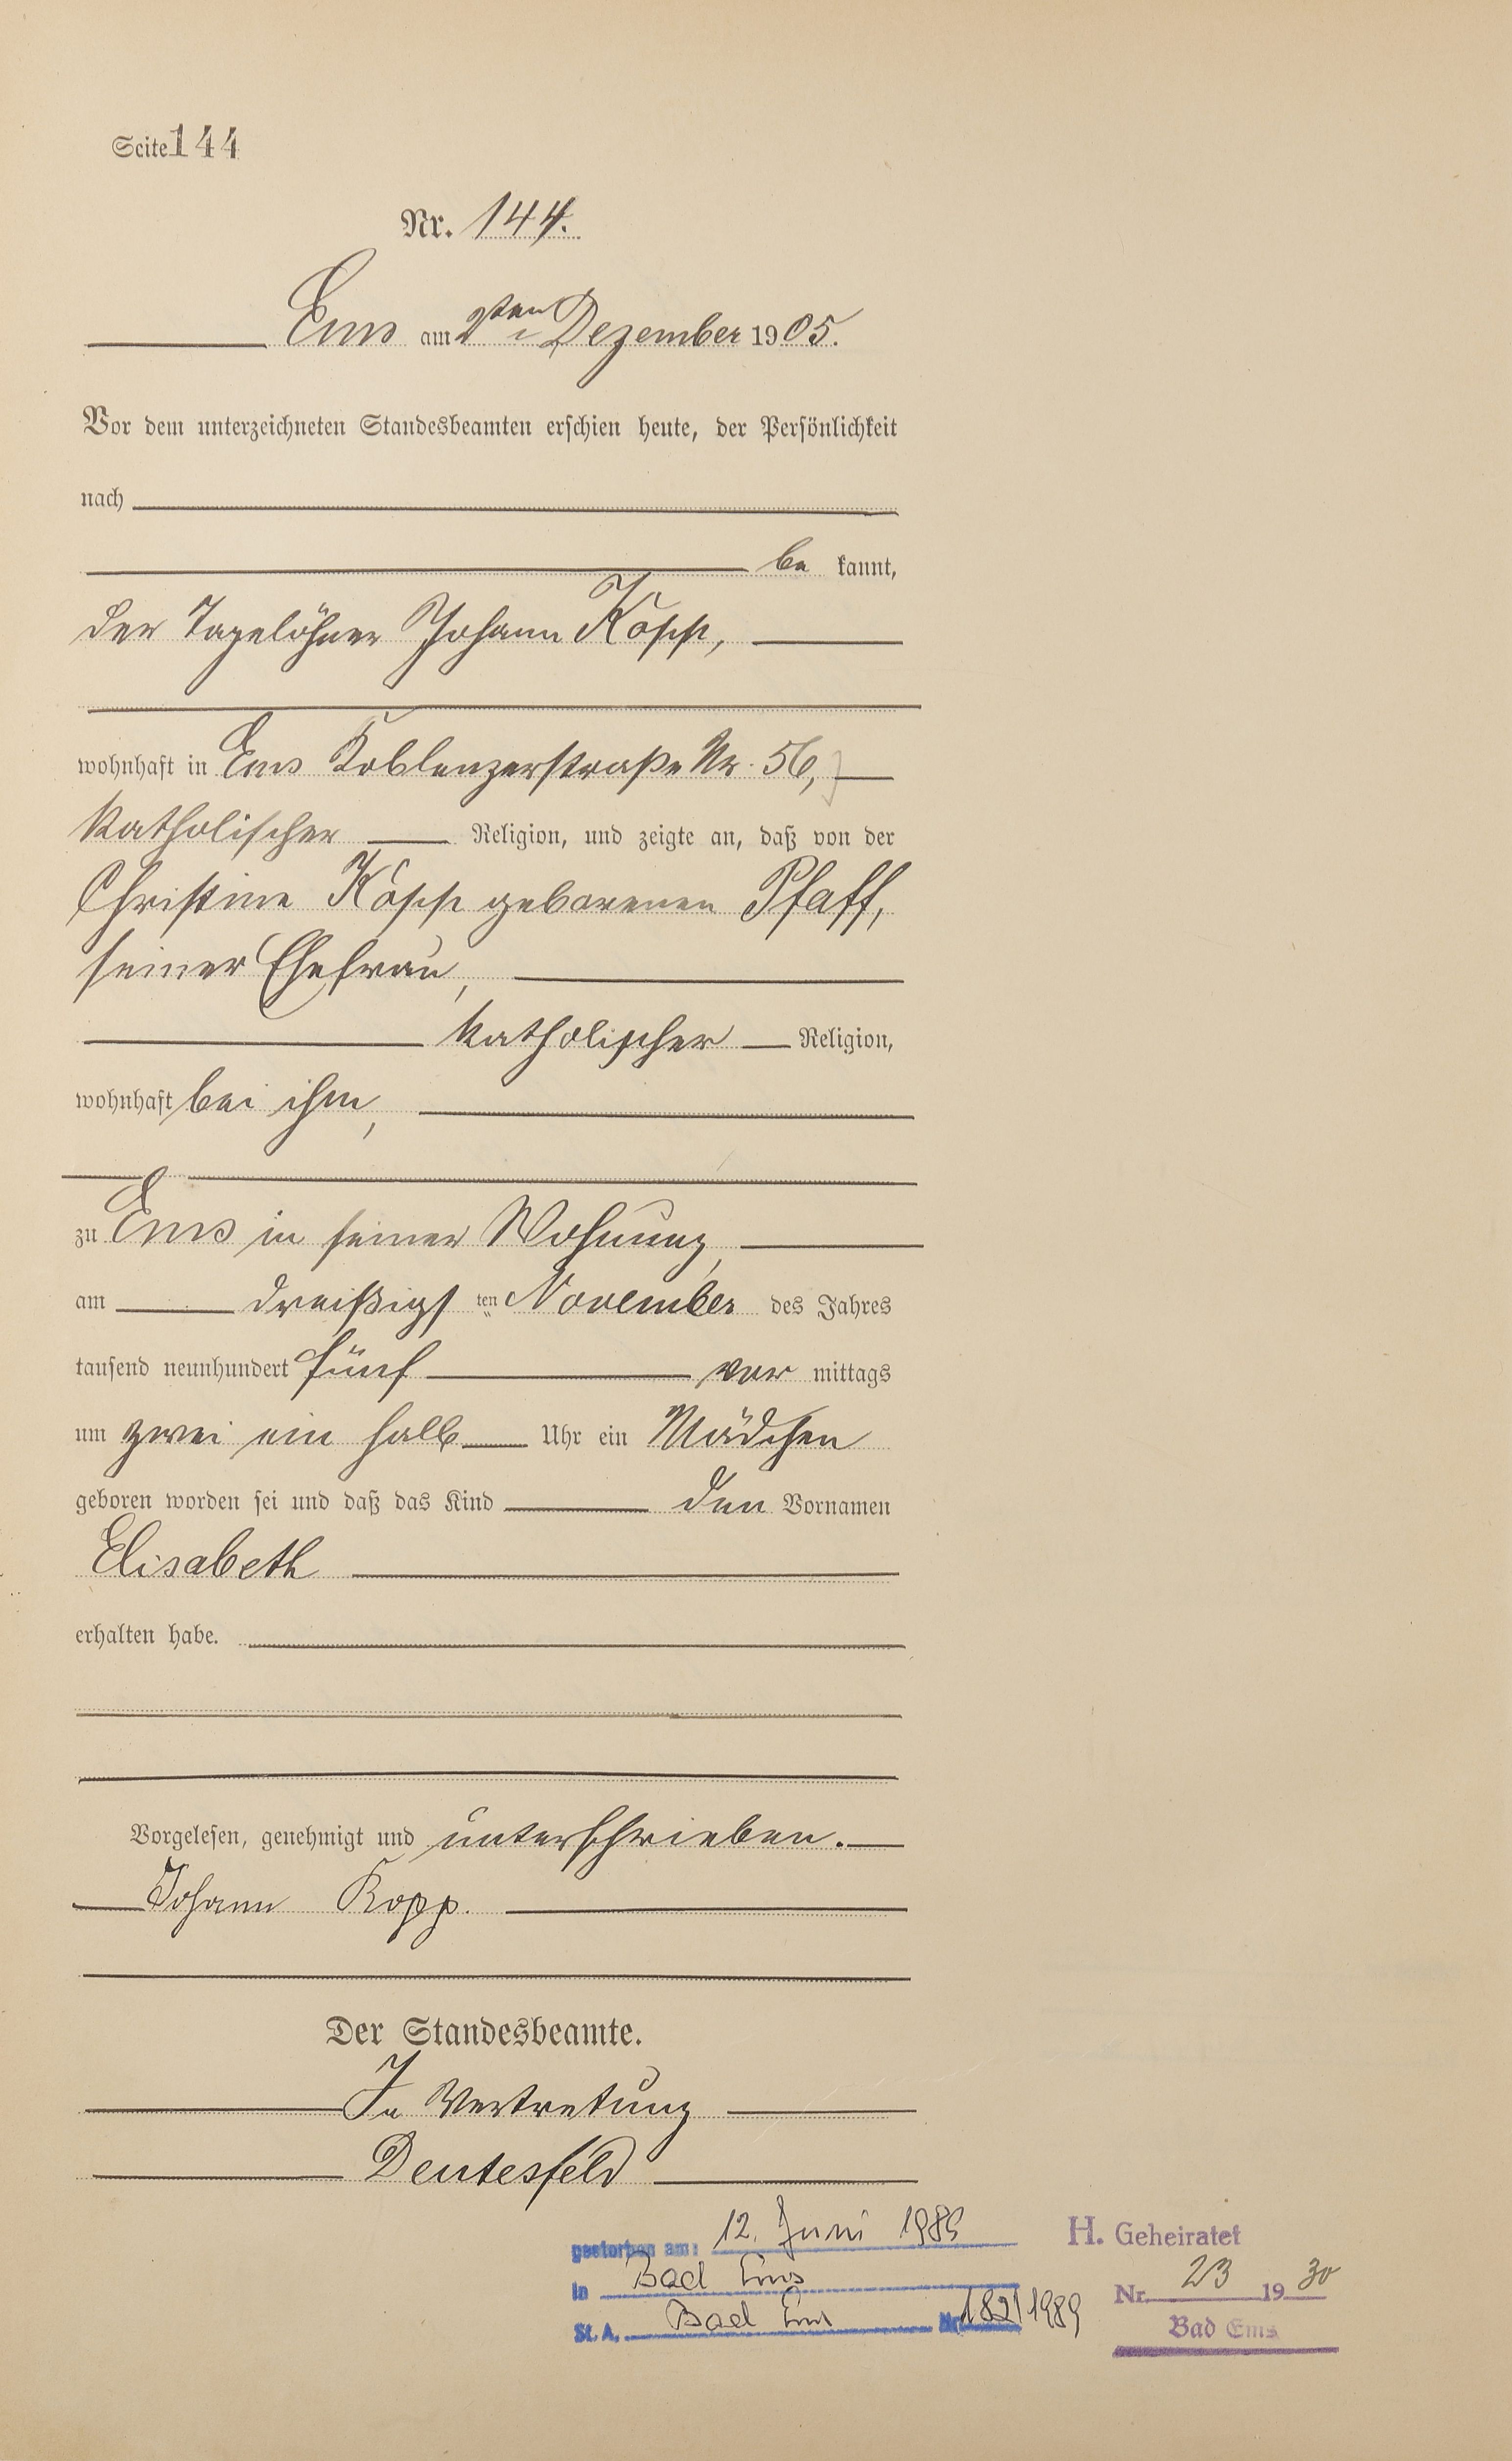 Seite 144
Nr. 144.
Ems am 2ten Dezember 1905.
Vor dem unterzeichneten Standesbeamten erschien heute, der Persönlichkeit
nach
be kannt,
der Tagelöhner Johann Kopp,
wohnhaft in Ems Koblenzerstraße Nr. 56,
katholischer Religion, und zeigte an, daß von der
Christine Kopp geborenen Pfaff,
seiner Ehefrau,
katholischer Religion,
wohnhaft bei ihm,
zu Ems in seiner Wohnung,
am dreißigs ten November des Jahres
tausend neunhundert fünf vor mittags
um zwei ein halb Uhr ein Mädchen
geboren worden sei und daß das Kind den Vornamen
Elisabeth
erhalten habe.
Vorgelesen, genehmigt und unterschrieben.
Johann Kopp.
Der Standesbeamte.
In Vertretung
Deutesfeld
gestorben am: 12. Juni 1989
in Bad Ems
St. A. Bad Ems Nr. 182/1989
H. Geheiratet
Nr. 23 1930
Bad Ems